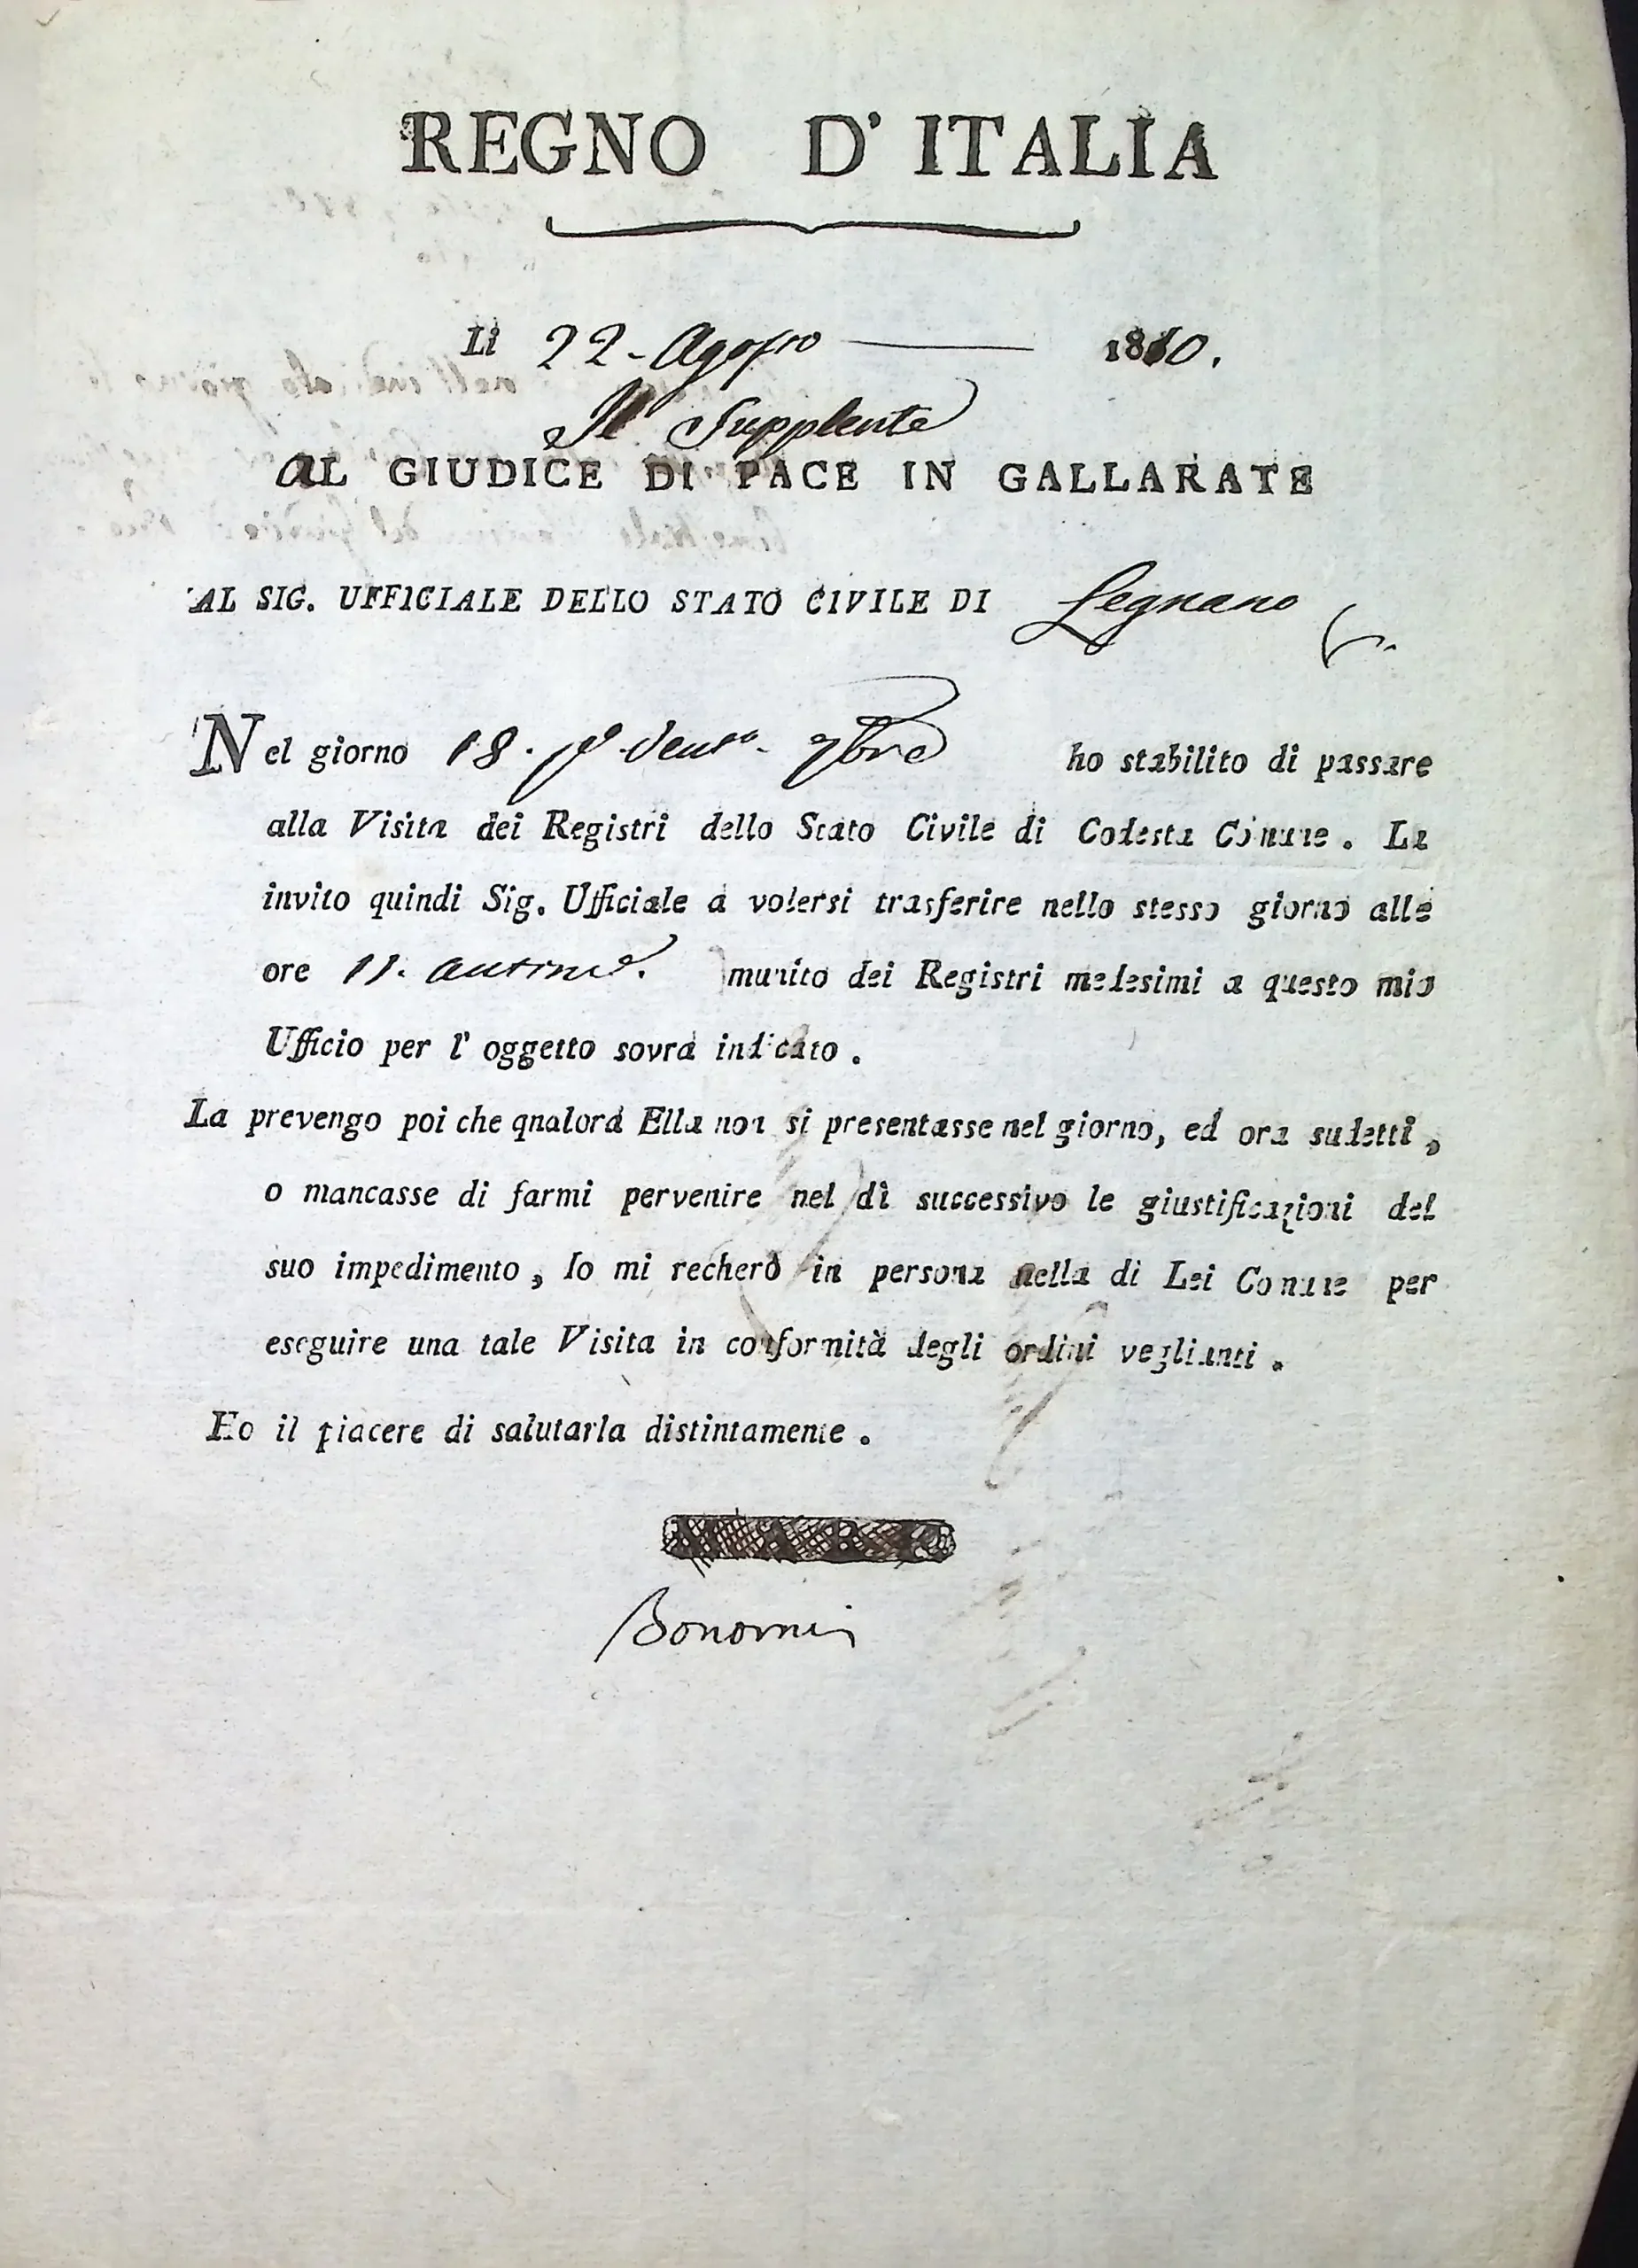 REGNO D' ITALIA
Li 22 - Agosto 1810.
Il Supplente
AL GIUDICE DI PACE IN GALLARATE
AL SIG. UFFICIALE DELLO STATO CIVILE DI Legnano
Nel giorno 18. pº. ventº. 7bre ho stabilito di passare
alla Visita dei Registri dello Stato Civile di Codesta Comune. La
invito quindi Sig. Ufficiale a volersi trasferire nello stesso giorno alle
ore 11. antime. munito dei Registri medesimi a questo mio
Ufficio per l' oggetto sovra indicato.
La prevengo poi che qnalora Ella non si presentasse nel giorno, ed ora sudetti,
o mancasse di farmi pervenire nel dì successivo le giustificazioni del
suo impedimento, Io mi recherò in persona nella di Lei Comune per
eseguire una tale Visita in conformità degli ordini veglianti.
Ho il piacere di salutarla distintamente.
Bonomi